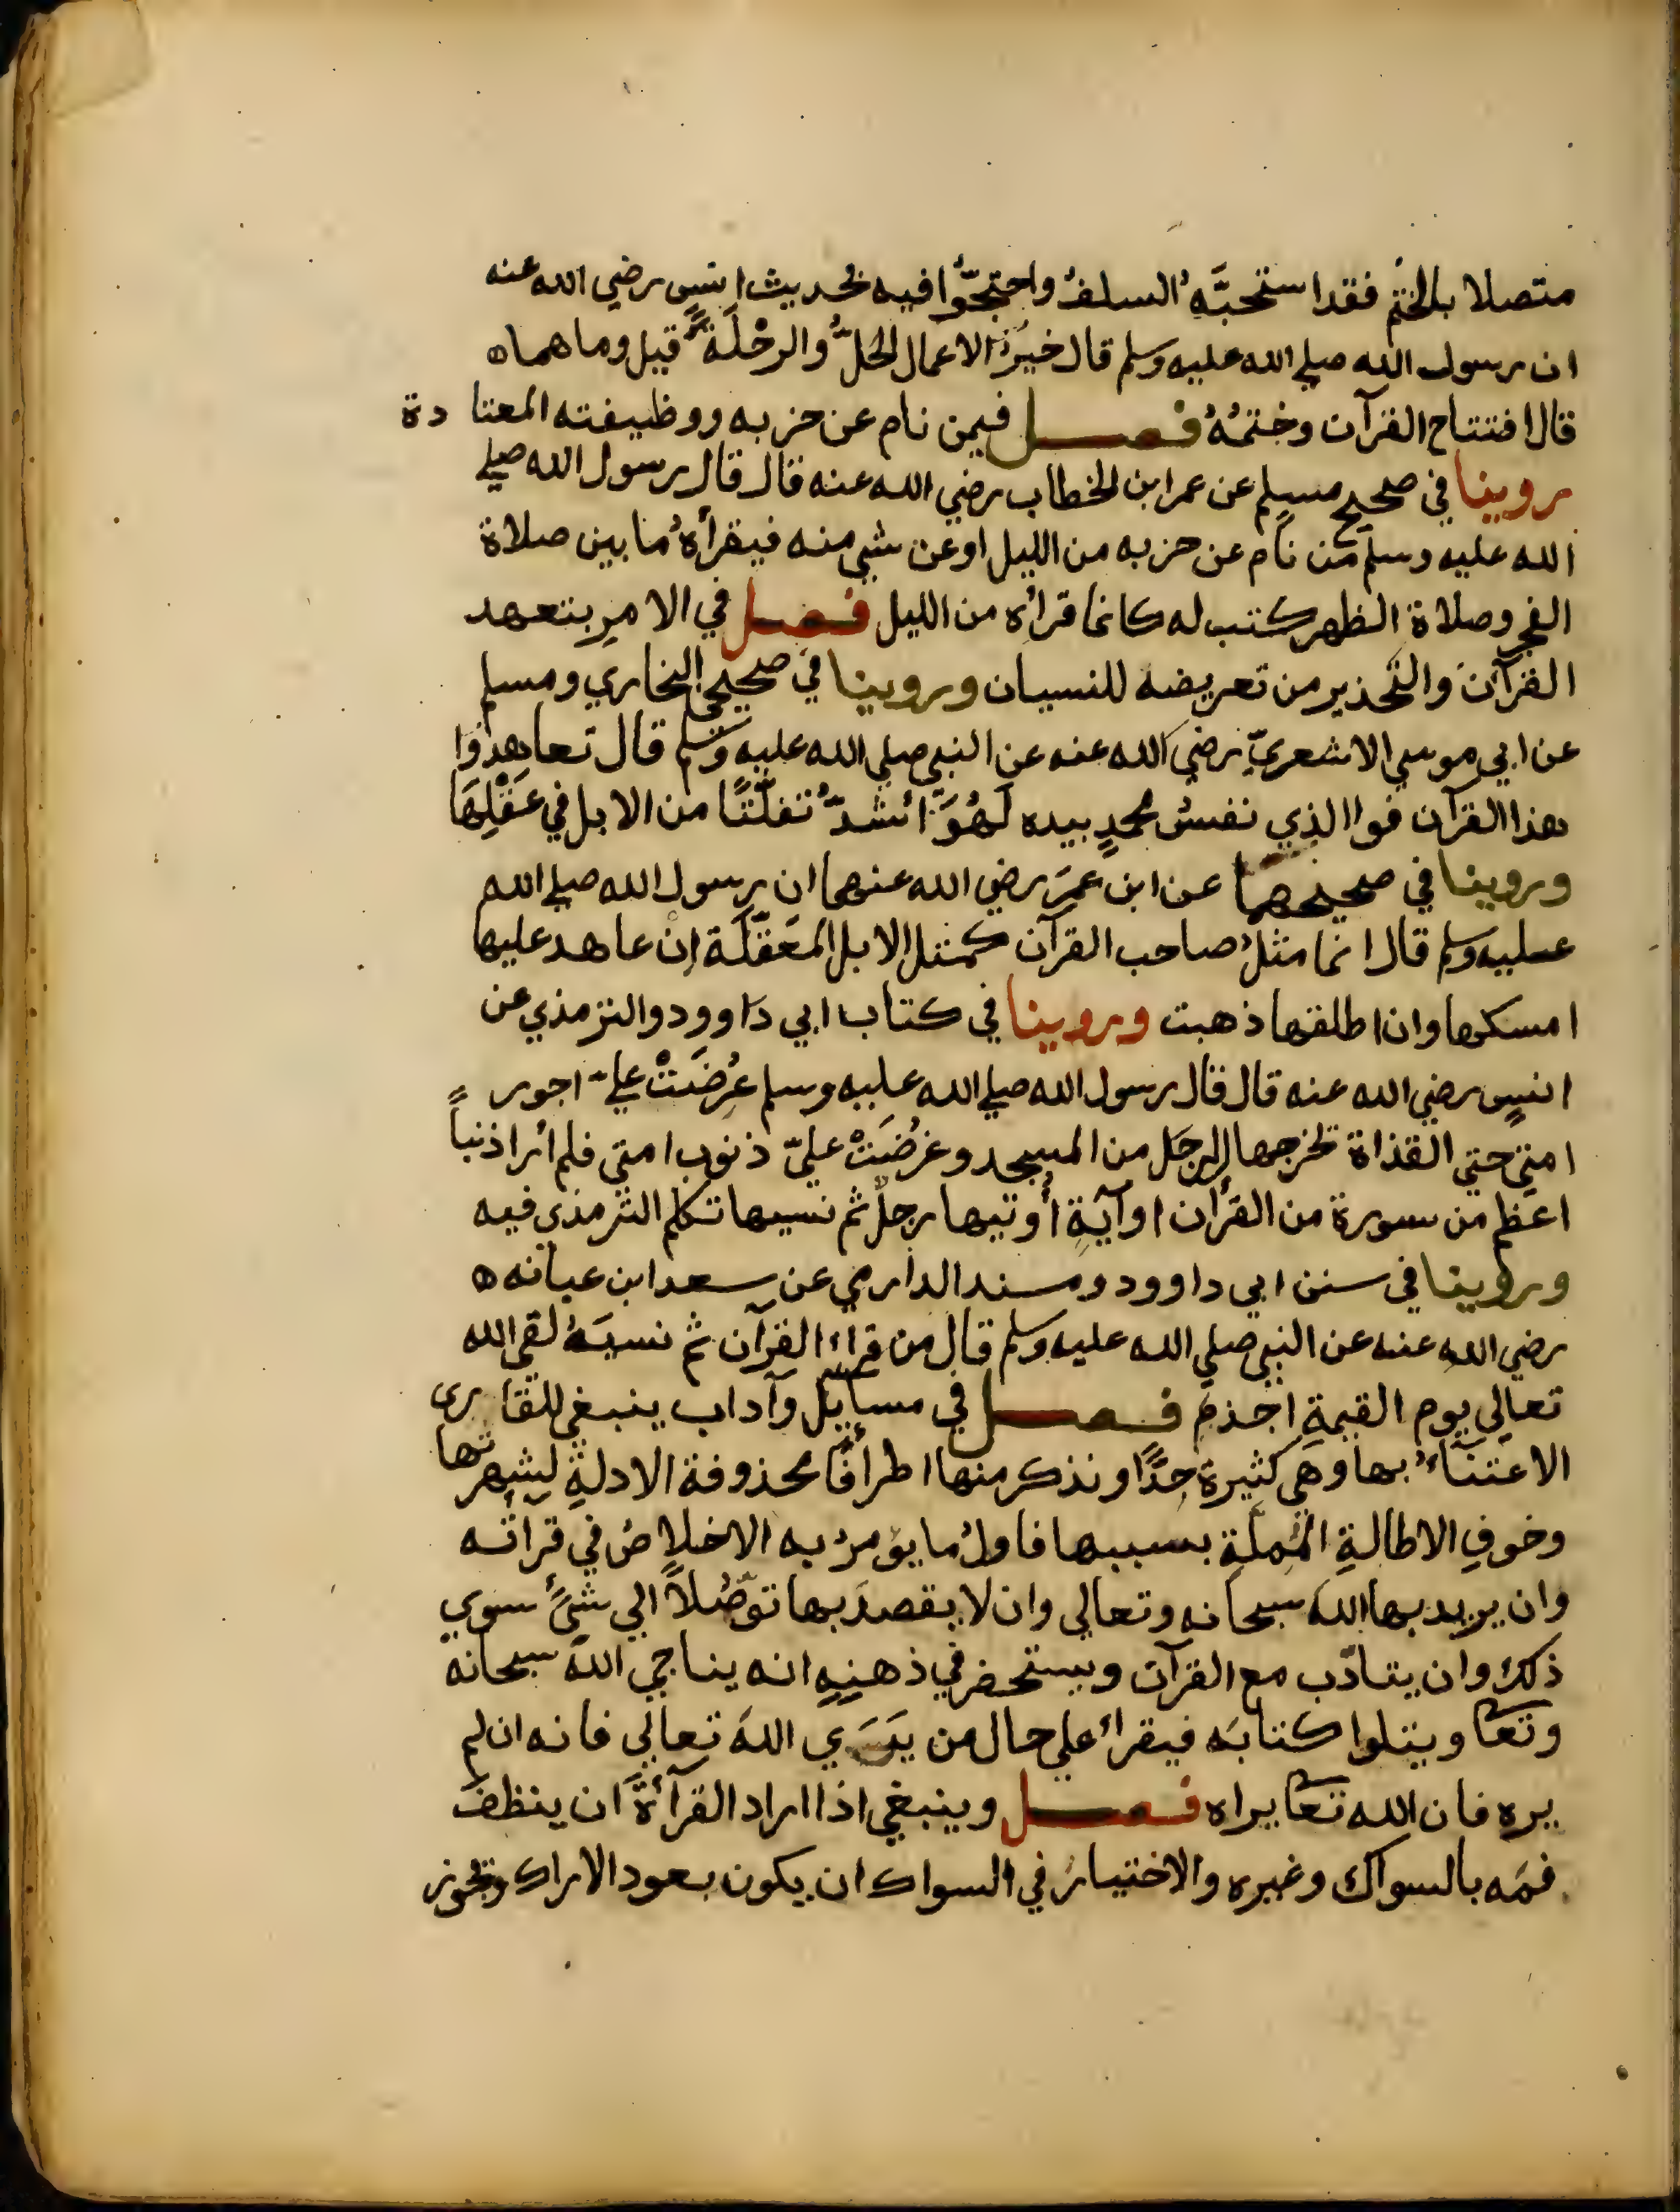 متصلا بالختم فقد استحبَّهُ السلفُ واحتجّوا فيه بحديث انسٍ رضي الله عنه
ان رسول الله صلي الله عليه وسلم قال خيرُ الاعمال الحَلُّ والرحْلَةُ قيل وما هما ه
قال افتتاح القرآن وختمُهُ فصل فيمن نام عن حزبه ووظيفته المعتادة
روينا في صحيح مسلم عن عمر ابن الخطاب رضي الله عنه قال قال رسول الله صلي
الله عليه وسلم من نام عن حزبه من الليل او عن شيٍ منه فيقرأهُ ما بين صلاة
الفجر وصلاة الظهر كتب له كانما قراه من الليل فصل في الامر بتعهد
القرآن والتحذير من تعريضه للنسيان وروينا في صحيحي البخاري ومسلم
عن ابي موسي الاشعريّ رضي الله عنه عن النبي صلي الله عليه وسلم قال تعاهدوا
هذا القرآن فوا الذي نفسُ محمدٍ بيده لَهُوَ اشدُّ تفلّتًا من الابل في عَقْلِهَا
وروينا في صحيحهما عن ابن عمرَ رضي الله عنهما ان رسول الله صلي الله
عليه وسلم قال انما مثلُ صاحب القرآن كمثل الابل المعَقّلَة اِنْ عاهد عليها
امسكها وان اطلقها ذهبت وروينا في كتاب ابي داوود والترمذي عن
انسٍ رضي الله عنه قال قال رسول الله صلي الله عليه وسلم عُرِضَتْ عليّ اجور
امتي حتي القذاة يخرجها الرجل من المسجد وعُرُضَتْ عليّ ذنوب امتي فلم ارا ذنباً
اعظم من سورة من القرآن اوآيةٍ اُوتيها رجلٌ ثم نسيها تكلم الترمذي فيه
وروينا في سنن ابي داوود ومسند الدارمي عن سعد ابن عبانه ه
رضي الله عنه عن النبي صلي الله عليه وسلم قال من قراء القرآن ثم نسيَهُ لقي الله
تعالي يوم القيمة اجذم فصل في مسايل وآداب ينبغي للقاري
الاعتناءُ بها وهي كثيرة جدًّا ونذكر منها اطرافًا محذوفة الادلةِ لشهرتها
وخوفِ الاطالةِ المُملّةِ بسببها فاولُ ما يؤمرُ به الاخلاصُ في قراته
وان يريد بها اللهَ سبحانه وتعالي وان لا يقصدَ بها توصّلاً الي شئٍ سوي
ذلك وان يتادّب مع القرآن ويستحضر في ذهنهِ انه يناجي اللهَ سبحانه
وتعا ويتلوا كتابَه فيقراُ علي حال من يَرَي اللهَ تعالي فانه ان لم
يره فان الله تعا يراه فصل وينبغي اذا اراد القرآئةَ ان ينظفَ
فمَه بالسواك وغيره والاختيارُ في السواك ان يكون بعود الاراك ويجوز